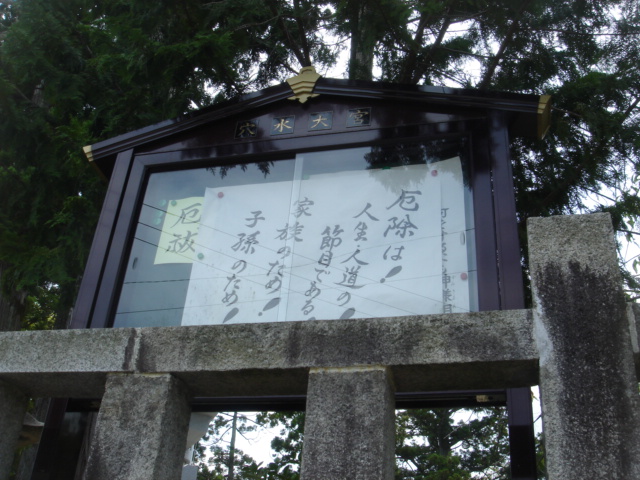 穴水大宮
厄除は!
人生人道の!
節目である
家族のため!
子孫のため!
厄祓